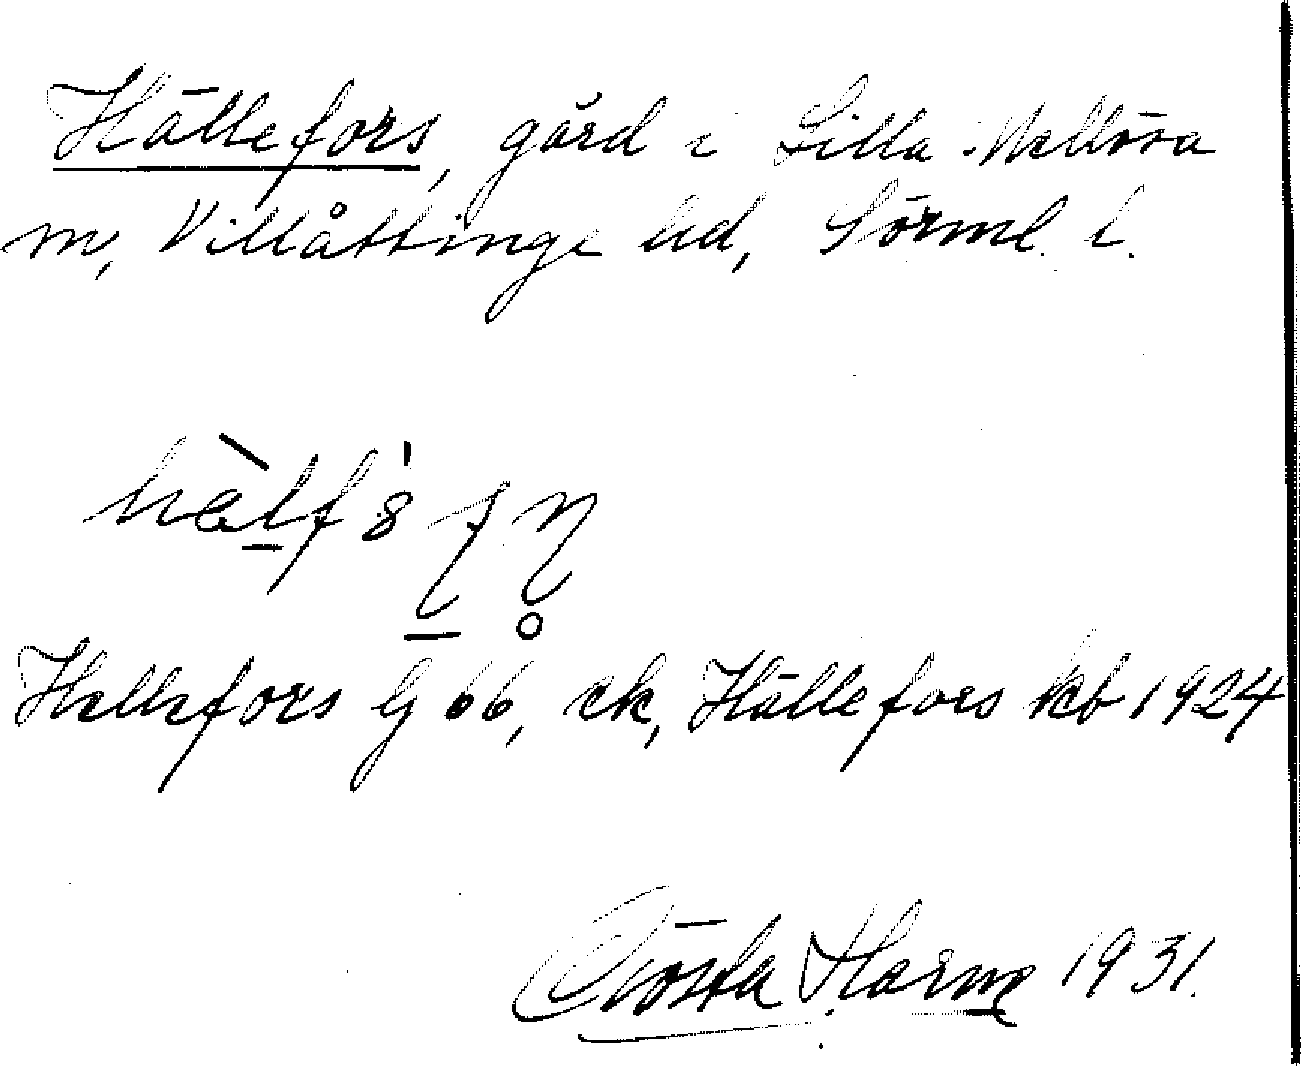 Hällefors, gård i Lilla Mellösa
sn, Villåttinge hd, Sörml. l.
Hellefors G 66, ek, Hällefors kb 1924
Gösta Harme 1931.